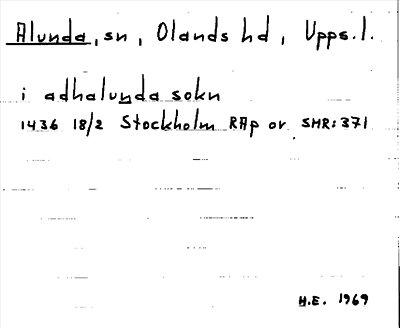 Alunda, sn, Olands hd, Upps.l.
i adhalunda sokn
1436 18/2 Stockholm RAp or SMR:371
H.E. 1969